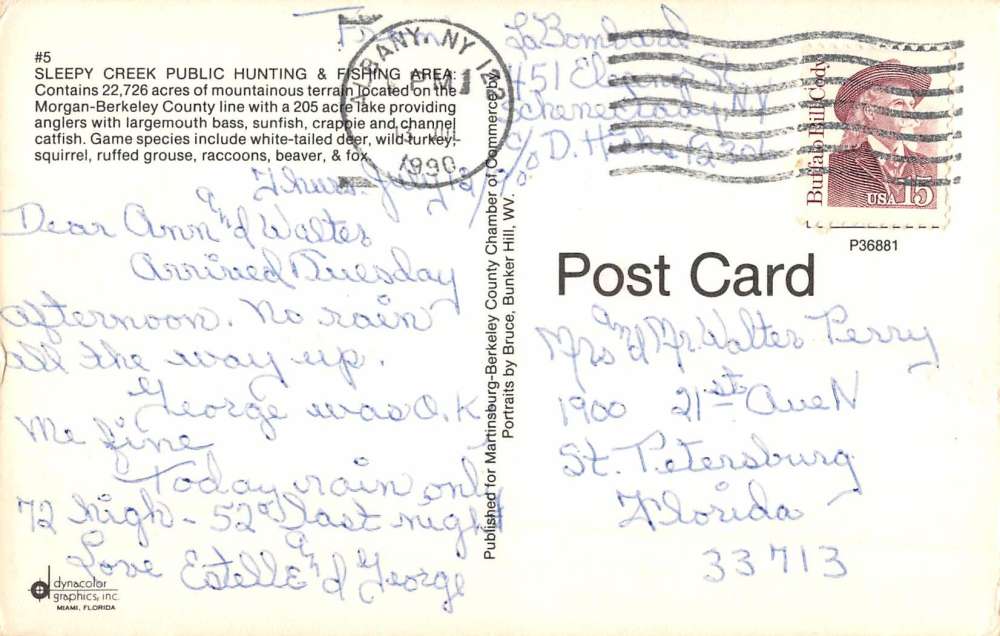 #5
SLEEPY CREEK PUBLIC HUNTING & FISHING AREA:
Contains 22,726 acres of mountainous terrain located on the
Morgan-Berkeley County line with a 205 acre lake providing
anglers with largemouth bass, sunfish, crappie and channel
catfish. Game species include white-tailed deer, wild turkey,
squirrel, ruffed grouse, raccoons, beaver, & fox.
Thurs. July 12/90
Dear Ann and Walter
Arrived Tuesday
afternoon. No rain
all the way up.
George was O.K
Me fine
Today rain only
72 high - 52° last night
Love Estelle and George
dynacolor
graphics, inc.
MIAMI, FLORIDA
Published for Martinsburg-Berkeley County Chamber of Commerce by
Portraits by Bruce, Bunker Hill, WV.
ALBANY, NY
PM
13 JUL
1990
From LaBombard
451 St
Schenectady NY
c/o D.
Buffalo Bill Cody
USA 15
P36881
Post Card
Mrs and Mr. Walter Perry
1900 21st Ave N
St. Petersburg
Florida
33713